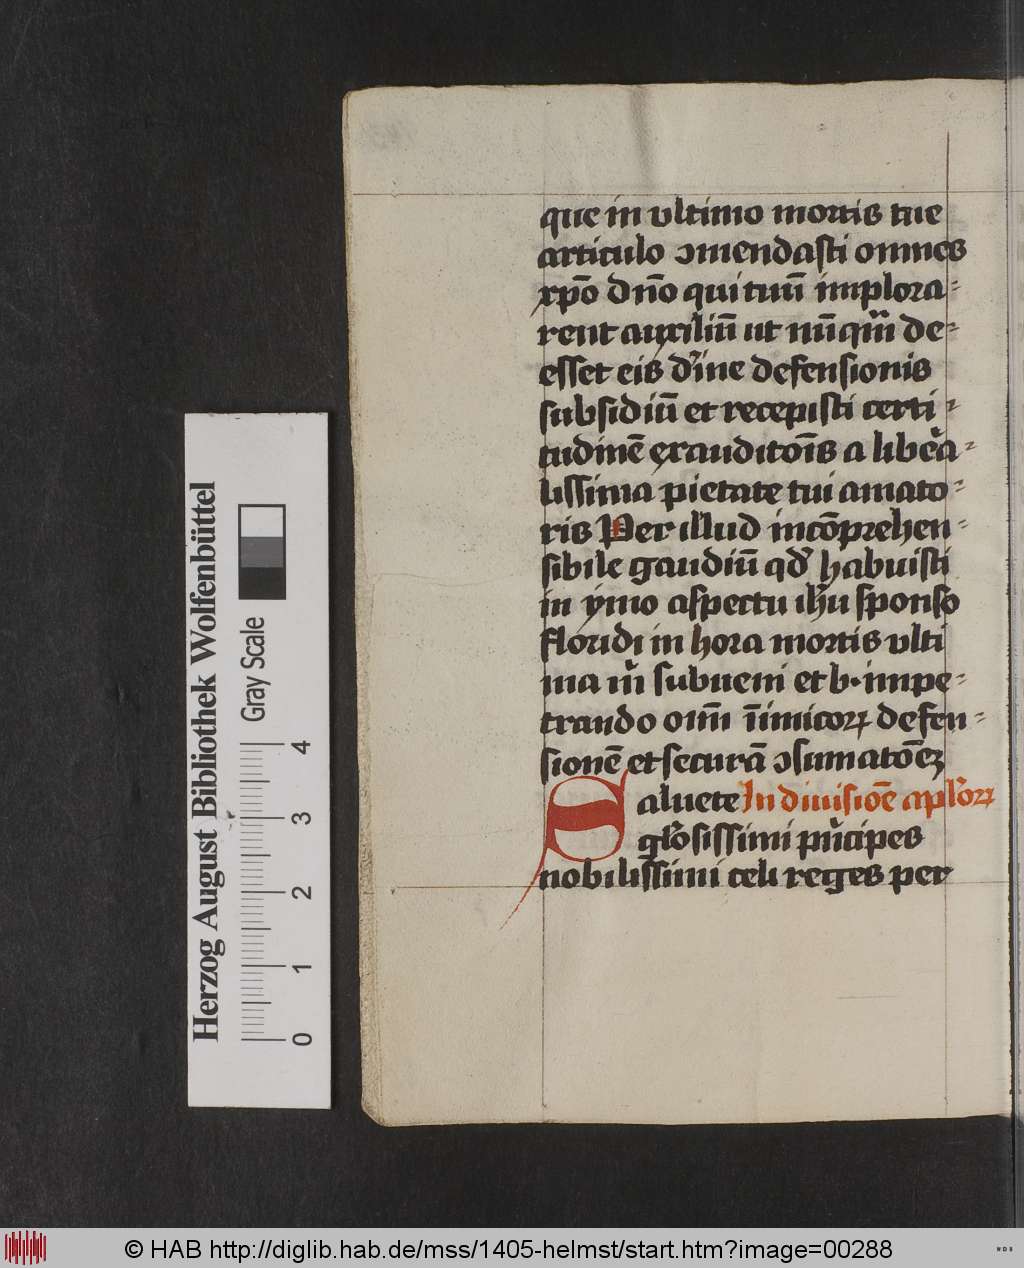 que in vltimo mortis tue
articulo ꝯmendasti omnes
xp̄o dn̄o qui tuū implora-
rent auxiliū ut nūqͣm de-
esset eis di̾ne defensionis
subsidiū et recepisti certi-
tudinē exauditōis a libea̾-
lissima pietate tui amato-
ris Per illud incōprehen-
sibile gaudiū qd̾ habuisti
in ymo aspectu ihu̾ sponso
floridi in hora mortis vlti
ma m̾ subueni et b· impe-
trando om̄ īimicoꝝ defen-
sionē et securā ꝯsumatōeꝫ
Saluete In diuisiōe apl̾oꝝ
gl̾osissimi pn̾cipes
nobilissimi celi reges per
Herzog August Bibliothek Wolfenbüttel
Gray Scale
0 1 2 3 4
© HAB http://diglib.hab.de/mss/1405-helmst/start.htm?image=00288